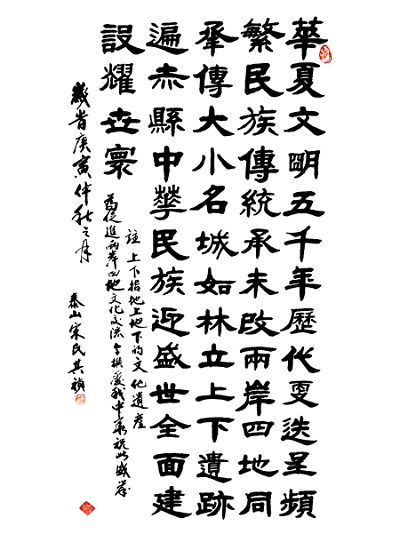 華夏文明五千年歷代更迭呈頻
繁民族傳統承未改兩岸四地同
承傳大小名城如林立上下遺跡
遍赤縣中華民族迎盛世全面建
設耀世寰
註 上下指地上地下的文化遺產
為促進兩岸四地文化交流
歲 庚寅仲秋之月
泰山宋氏其禎